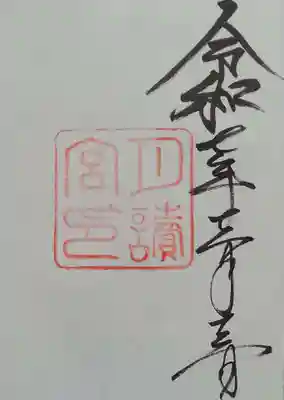 令和七年十二月三日
月讀宮印